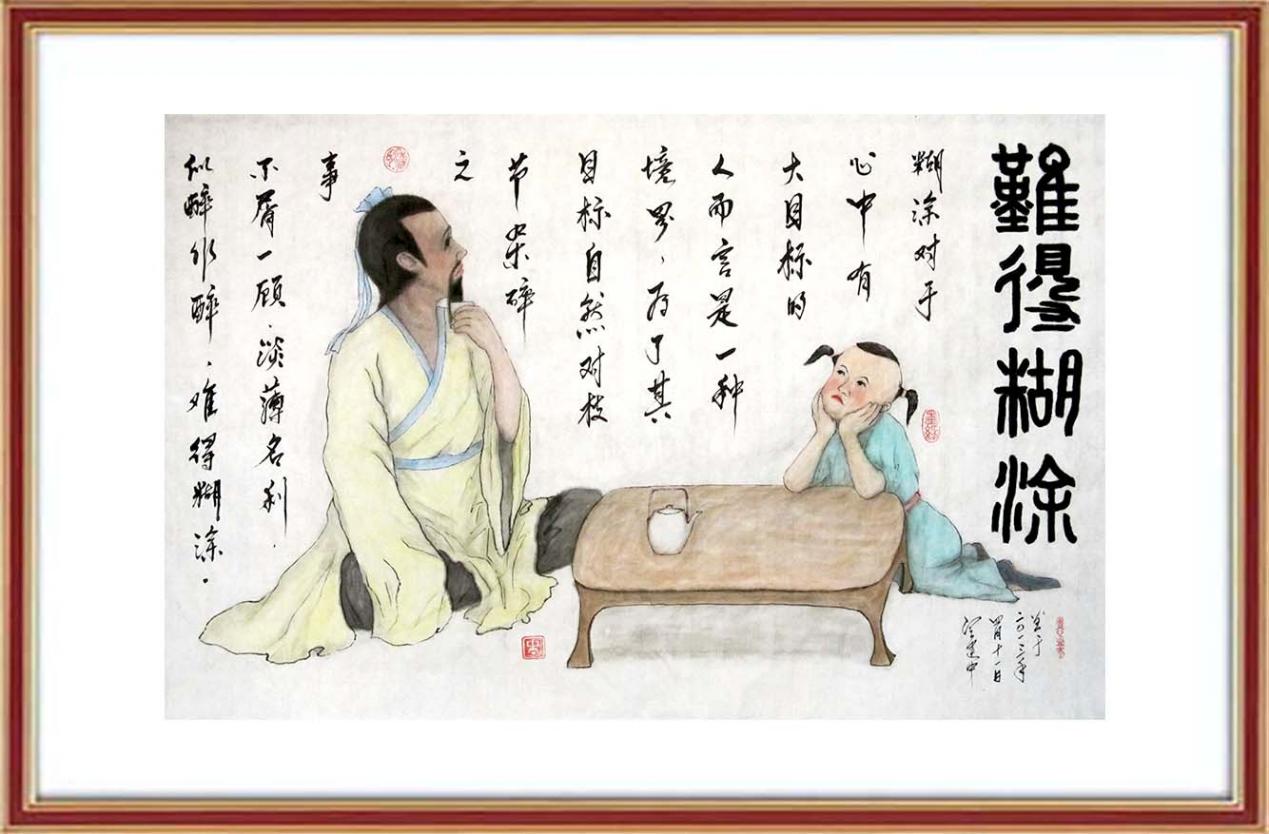 難得糊涂
糊涂对于
心中有
大目标的
人而言是一种
境界、为了其
目标自然对枝
节琐碎
之
事
不屑一顾、淡薄名利、
似醉非醉、难得糊涂。
二〇一三年
四月十一日